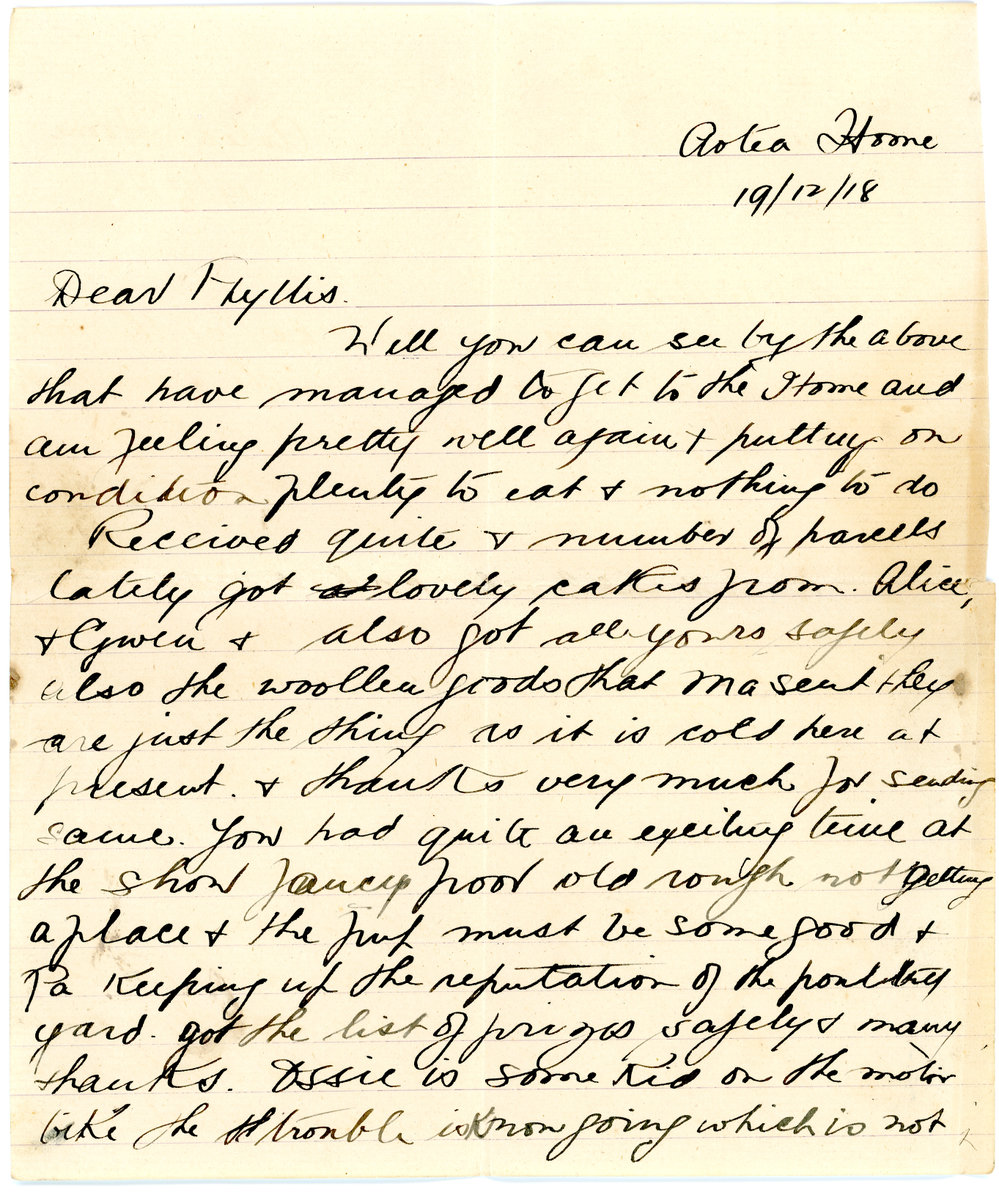 Aotea Home
19/12/18
Dear Phyllis.
Well you can see by the above
that have managed to get to the Home and
am feeling pretty well again & putting on
condition plenty to eat & nothing to do
Received quite a number of parcels
lately got lovely cakes from. Alice,
& Gwen & also got all yours safely
also the woollen goods that Ma sent they
are just the thing as it is cold here at
present. & thanks very much for sending
same. You had quite an exciting time at
the show fancy poor old rough not getting
a place & the pup must be some good &
Pa keeping up the reputation of the poultry
yard. got the list of prizes safely & many
thanks. Ossie is some kid on the motor
bike the trouble is now going which is not